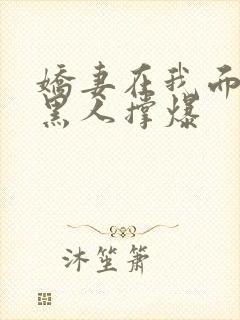 娇妻在我面
黑人撑爆
沐笙箫